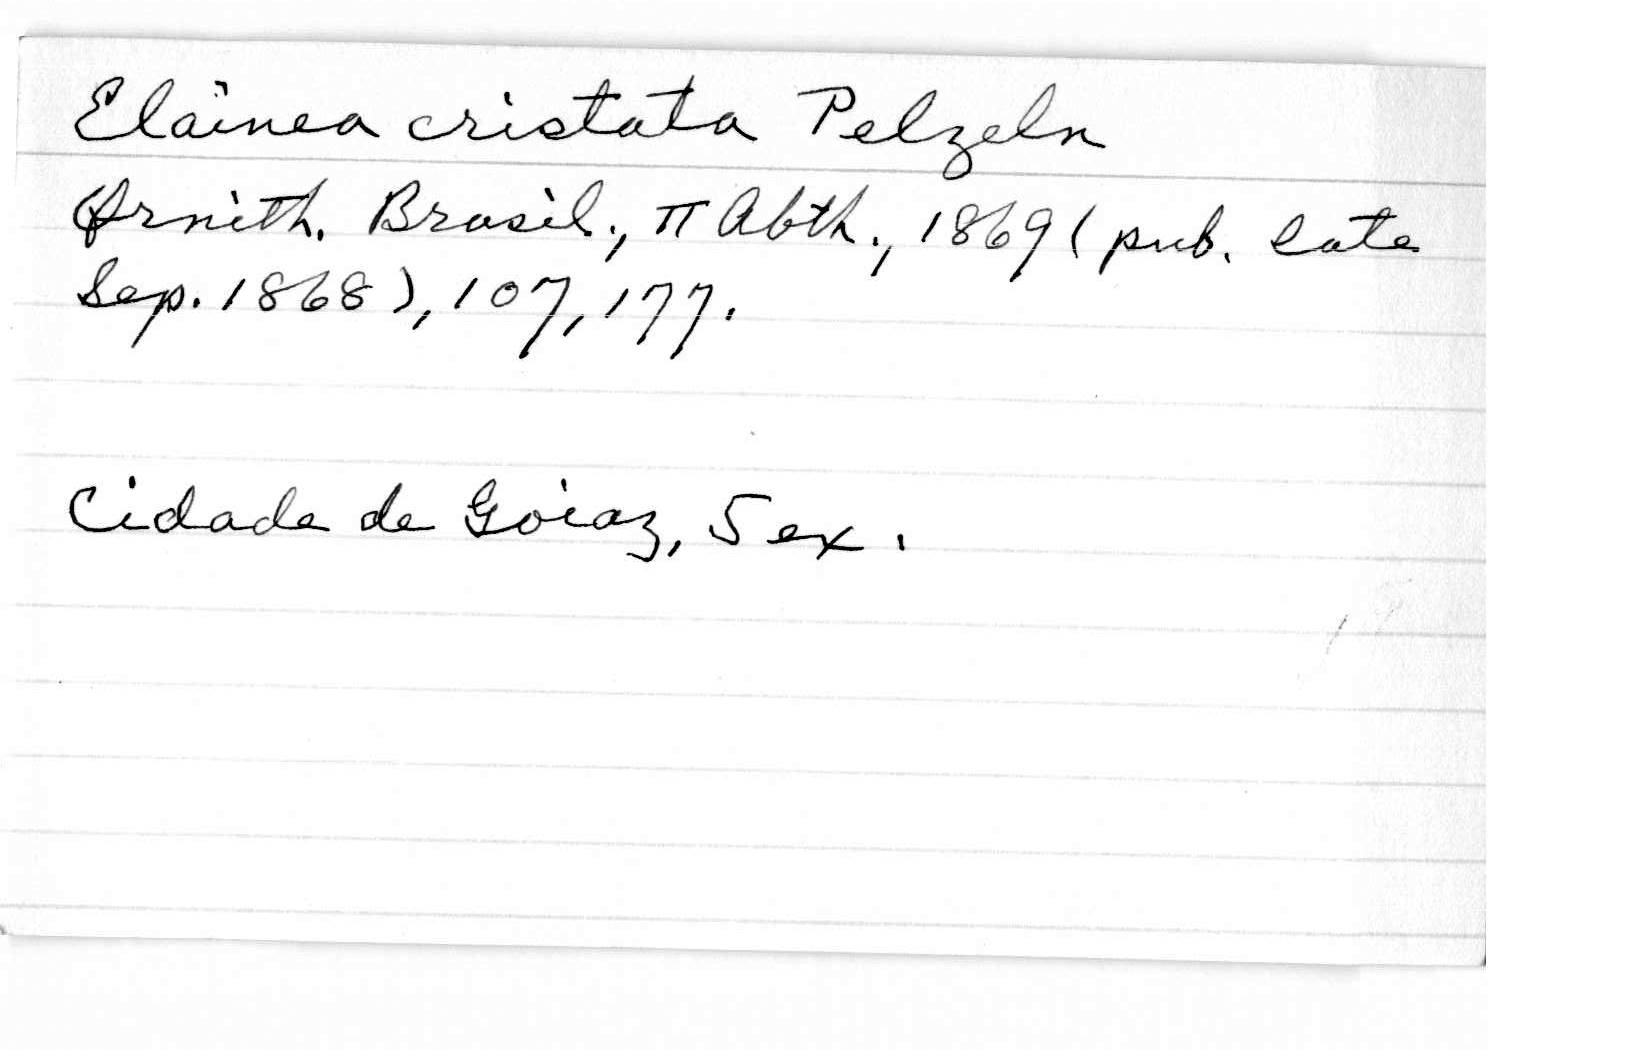 Elainea cristata Pelzeln
Ornith. Brasil., II Abth., 1869 (pub. late
Sep. 1868), 107, 177.
Cidade de Goiaz, 5 ex.